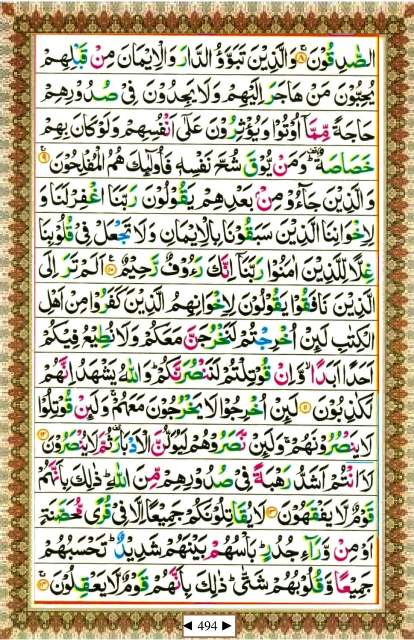 الصّٰدِقُوْنَ ۚ﴿۸﴾ وَالَّذِيْنَ تَبَوَّؤُ الدَّارَ وَالْاِيْمَانَ مِنْ قَبْلِهِمْ
يُحِبُّوْنَ مَنْ هَاجَرَ اِلَيْهِمْ وَلَا يَجِدُوْنَ فِىْ صُدُوْرِهِمْ
حَاجَةً مِّمَّاۤ اُوْتُوْا وَيُؤْثِرُوْنَ عَلٰٓى اَنْفُسِهِمْ وَلَوْ كَانَ بِهِمْ
خَصَاصَةٌ ؕ وَمَنْ يُّوْقَ شُحَّ نَفْسِهٖ فَاُولٰٓئِكَ هُمُ الْمُفْلِحُوْنَ ۚ﴿۹﴾
وَالَّذِيْنَ جَآءُوْ مِنْۢ بَعْدِهِمْ يَقُوْلُوْنَ رَبَّنَا اغْفِرْ لَنَا وَ
لِاِخْوَانِنَا الَّذِيْنَ سَبَقُوْنَا بِالْاِيْمَانِ وَلَا تَجْعَلْ فِىْ قُلُوْبِنَا
غِلًّا لِّلَّذِيْنَ اٰمَنُوْا رَبَّنَاۤ اِنَّكَ رَءُوْفٌ رَّحِيْمٌ ﴿۱۰﴾ اَلَمْ تَرَ اِلَى
الَّذِيْنَ نَافَقُوْا يَقُوْلُوْنَ لِاِخْوَانِهِمُ الَّذِيْنَ كَفَرُوْا مِنْ اَهْلِ
الْكِتٰبِ لَئِنْ اُخْرِجْتُمْ لَنَخْرُجَنَّ مَعَكُمْ وَلَا نُطِيْعُ فِيْكُمْ
اَحَدًا اَبَدًا ۙ وَّاِنْ قُوْتِلْتُمْ لَنَنْصُرَنَّكُمْ ؕ وَاللّٰهُ يَشْهَدُ اِنَّهُمْ
لَكٰذِبُوْنَ ﴿۱۱﴾ لَئِنْ اُخْرِجُوْا لَا يَخْرُجُوْنَ مَعَهُمْ ۚ وَلَئِنْ قُوْتِلُوْا
لَا يَنْصُرُوْنَهُمْ ۚ وَلَئِنْ نَّصَرُوْهُمْ لَيُوَلُّنَّ الْاَدْبَارَ ثُمَّ لَا يُنْصَرُوْنَ ﴿۱۲﴾
لَا۟اَنْتُمْ اَشَدُّ رَهْبَةً فِىْ صُدُوْرِهِمْ مِّنَ اللّٰهِ ؕ ذٰلِكَ بِاَنَّهُمْ
قَوْمٌ لَّا يَفْقَهُوْنَ ﴿۱۳﴾ لَا يُقَاتِلُوْنَكُمْ جَمِيْعًا اِلَّا فِىْ قُرًى مُّحَصَّنَةٍ
اَوْ مِنْ وَّرَآءِ جُدُرٍ ؕ بَاْسُهُمْ بَيْنَهُمْ شَدِيْدٌ ؕ تَحْسَبُهُمْ
جَمِيْعًا وَّقُلُوْبُهُمْ شَتّٰى ؕ ذٰلِكَ بِاَنَّهُمْ قَوْمٌ لَّا يَعْقِلُوْنَ ۚ﴿۱۴﴾
◄ 494 ►